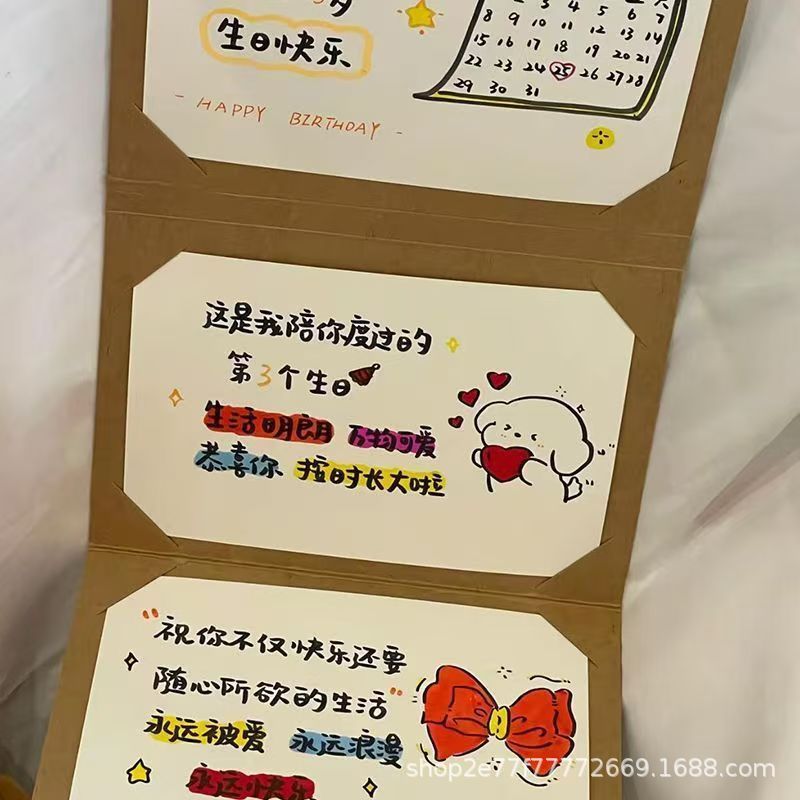 岁
生日快乐
- HAPPY BIRTHDAY -
2 3 4 5 6 7
8 9 10 11 12 13 14
15 16 17 18 19 20 21
22 23 24 25 26 27 28
29 30 31
这是我陪你度过的
第3个生日
生活明朗 万物可爱
恭喜你 按时长大啦
"祝你不仅快乐还要
随心所欲的生活"
永远被爱 永远浪漫
永远快乐
shop2e77f77772669.1688.com